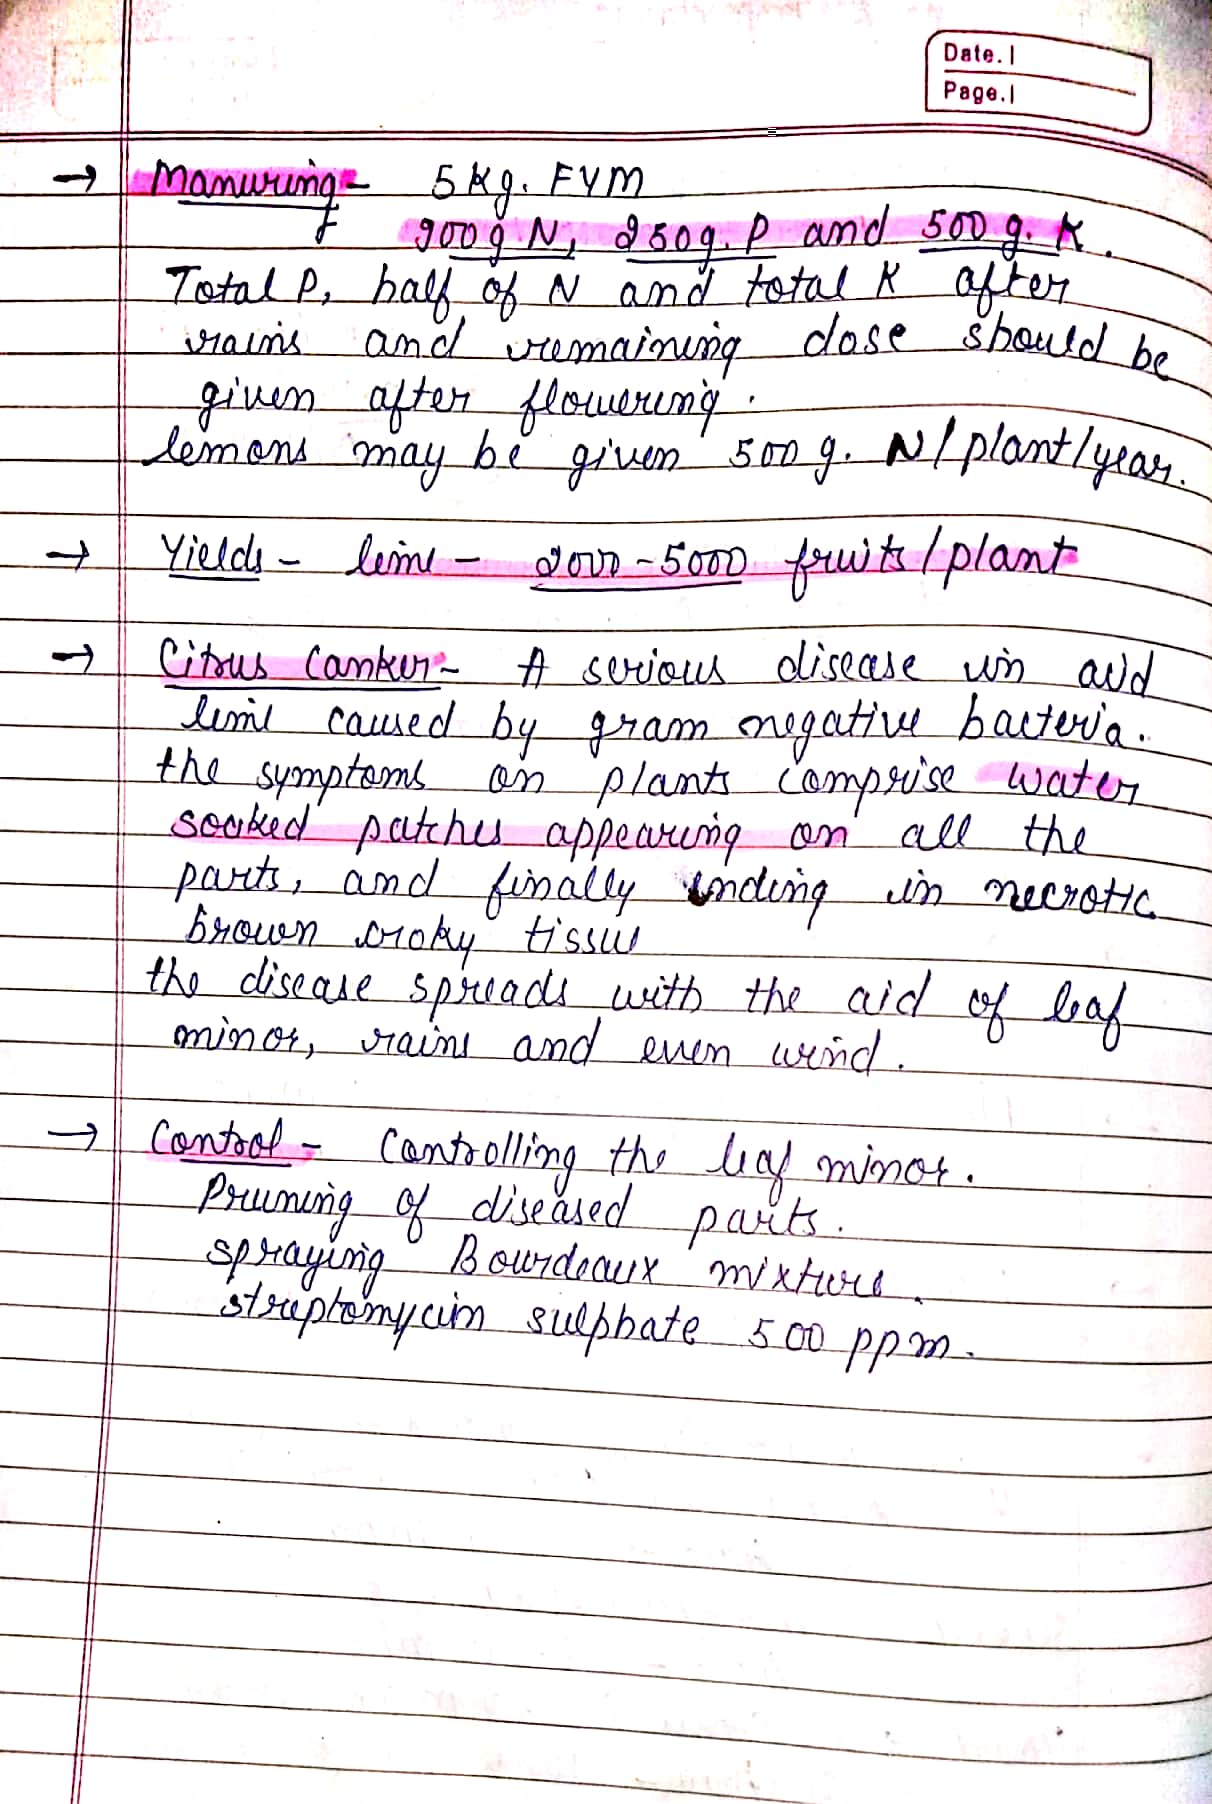 Date.
Page.
→ Manuring - 5 kg. FYM
900 g N, 250 g. P and 500 g. K.
Total P, half of N and total K after
rains and remaining dose should be
given after flowering.
lemons may be given 500 g. N/plant/year.
→ Yields - lime - 2000 - 5000 fruits/plant
→ Citrus Canker - A serious disease in acid
lime caused by gram negative bacteria.
the symptoms on plants comprise water
soaked patches appearing on all the
parts, and finally ending in necrotic
brown croky tissue
the disease spreads with the aid of leaf
minor, rains and even wind.
→ Control - Controlling the leaf minor.
Pruning of diseased parts.
spraying Bourdeaux mixture.
streptomycin sulphate 500 ppm.